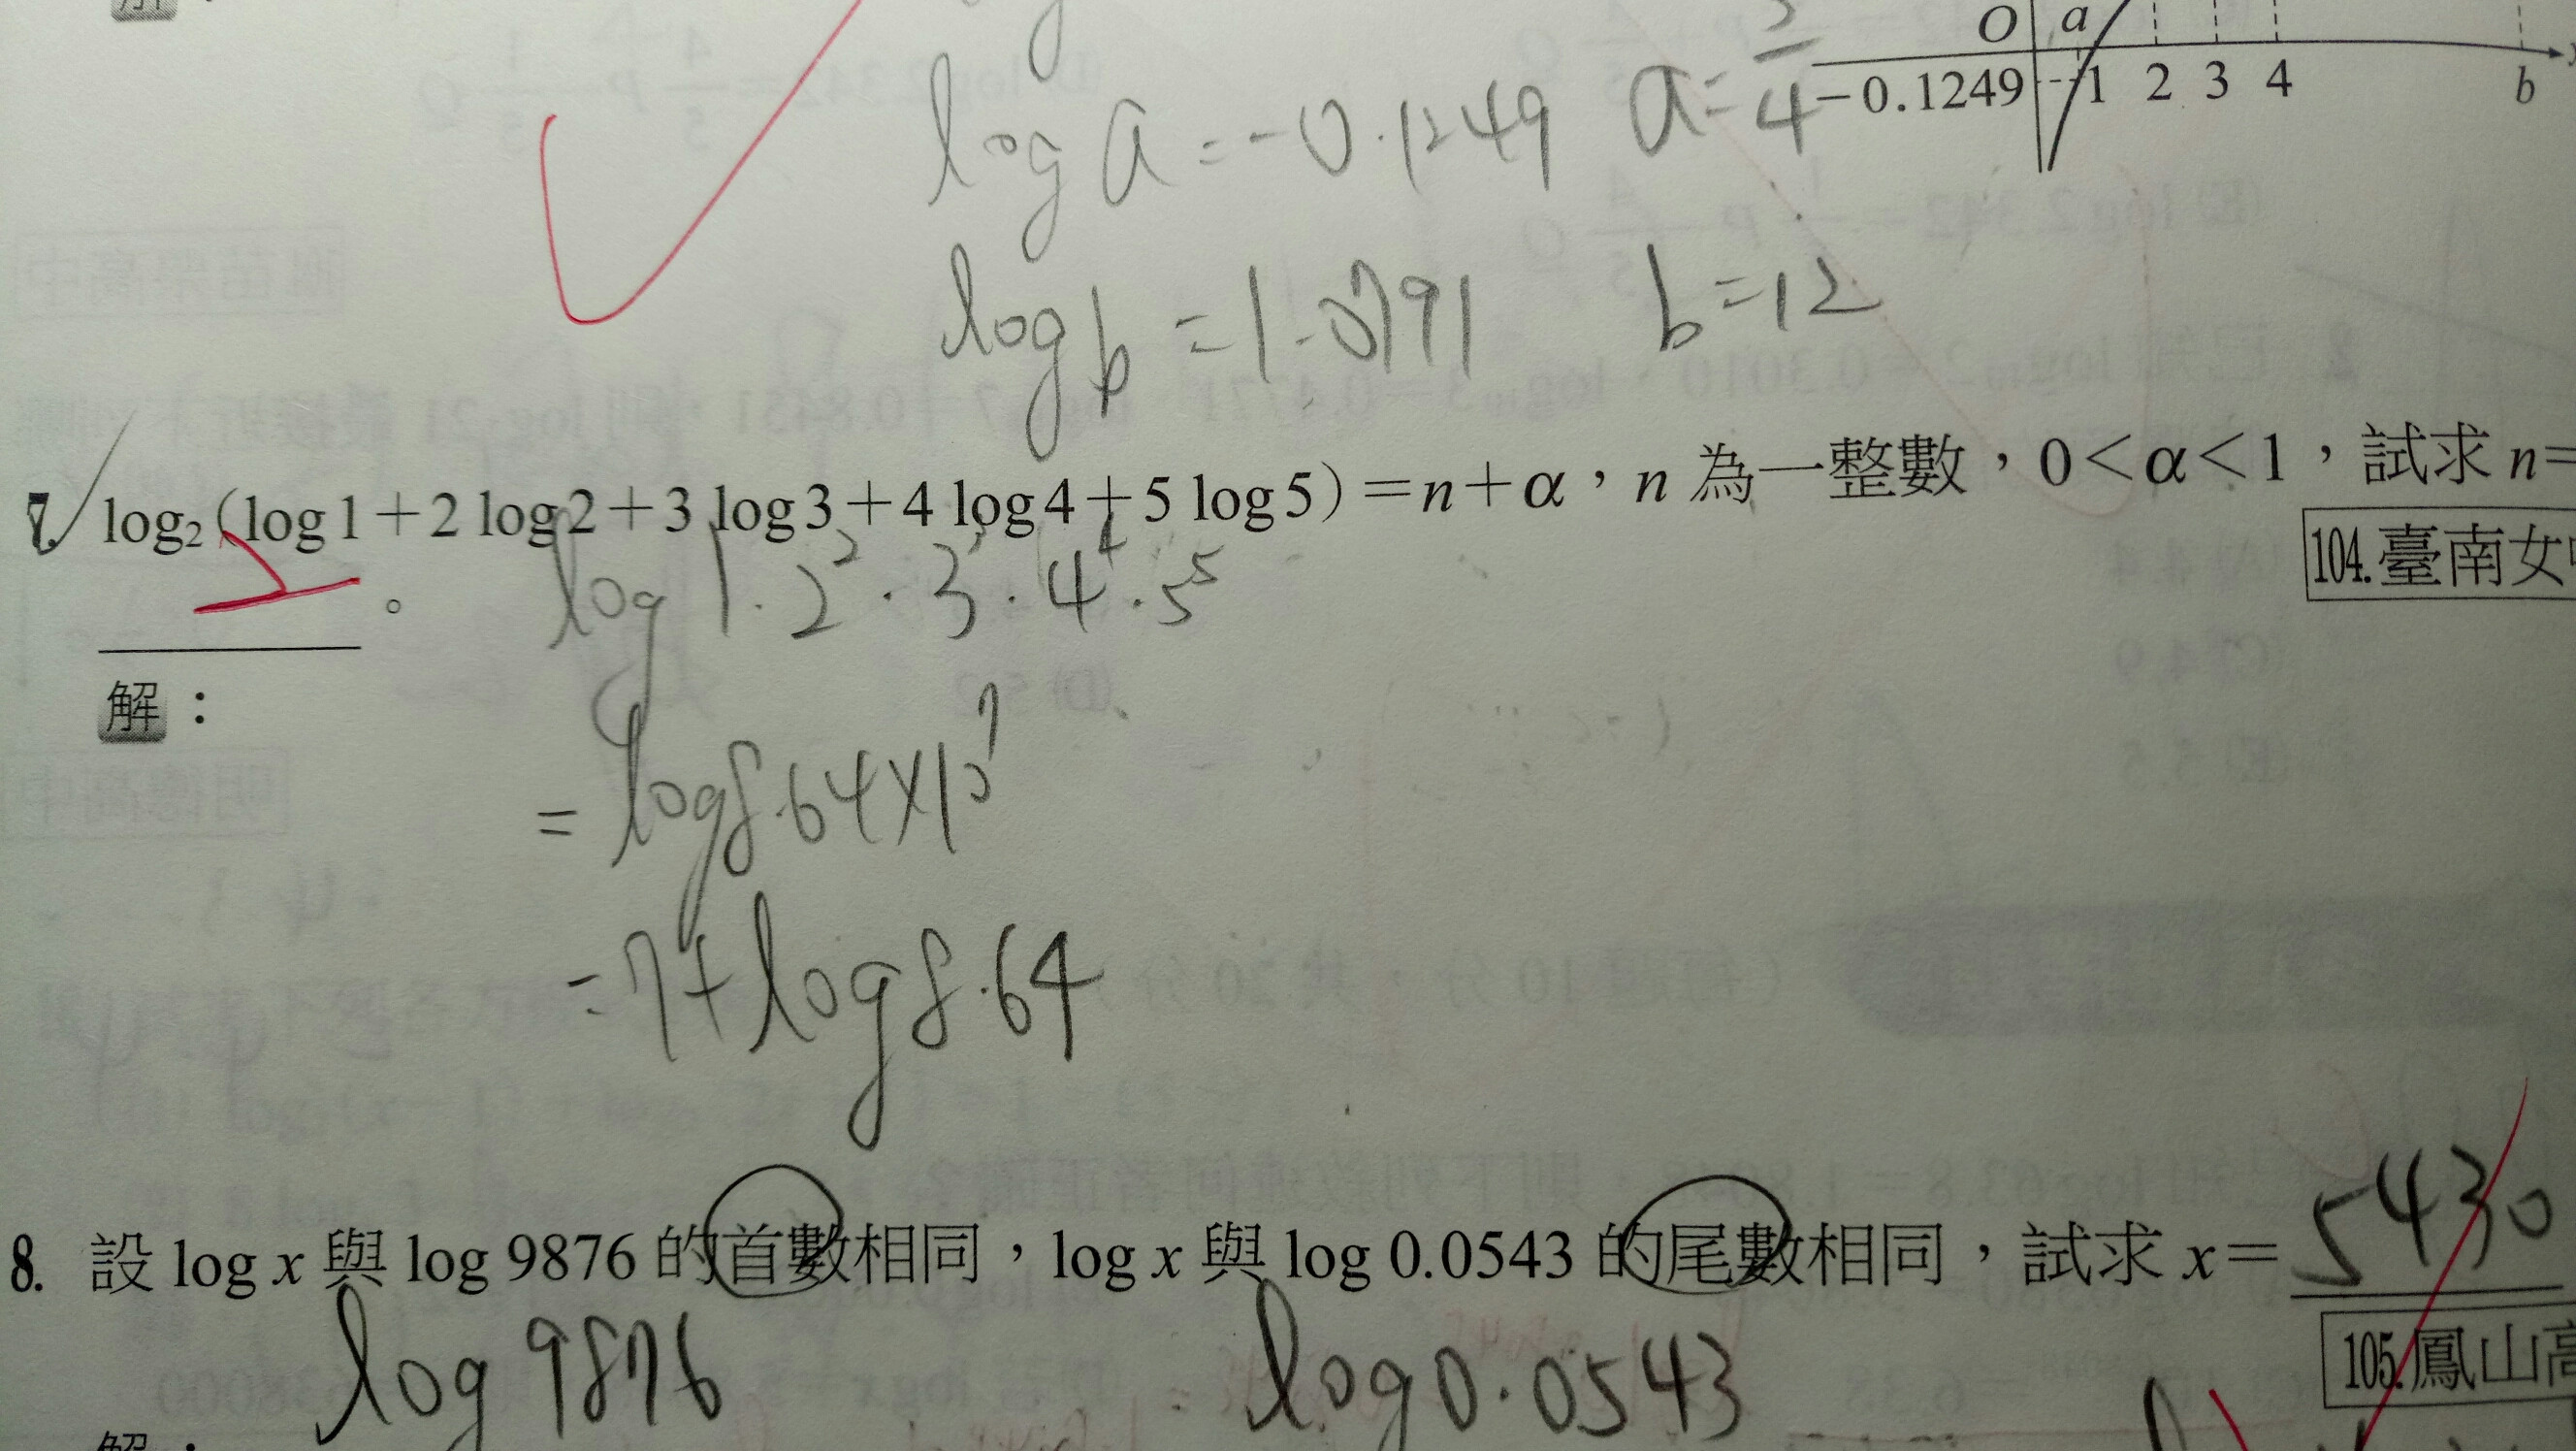 O a
-0.1249 1 2 3 4 b
log a = -0.1249 a = 3/4
log b = 1.0791 b = 12
7. log₂(log1+2 log2+3 log3+4 log4+5 log5)=n+α，n 為一整數，0<α<1，試求 n=
104.臺南女
2
。
log 1·2²·3³·4⁴·5⁵
解：
= log 8.64×10⁷
= 7+log 8.64
8. 設 log x 與 log 9876 的首數相同，log x 與 log 0.0543 的尾數相同，試求 x= 5430
105.鳳山高
log 9876 log 0.0543
解：